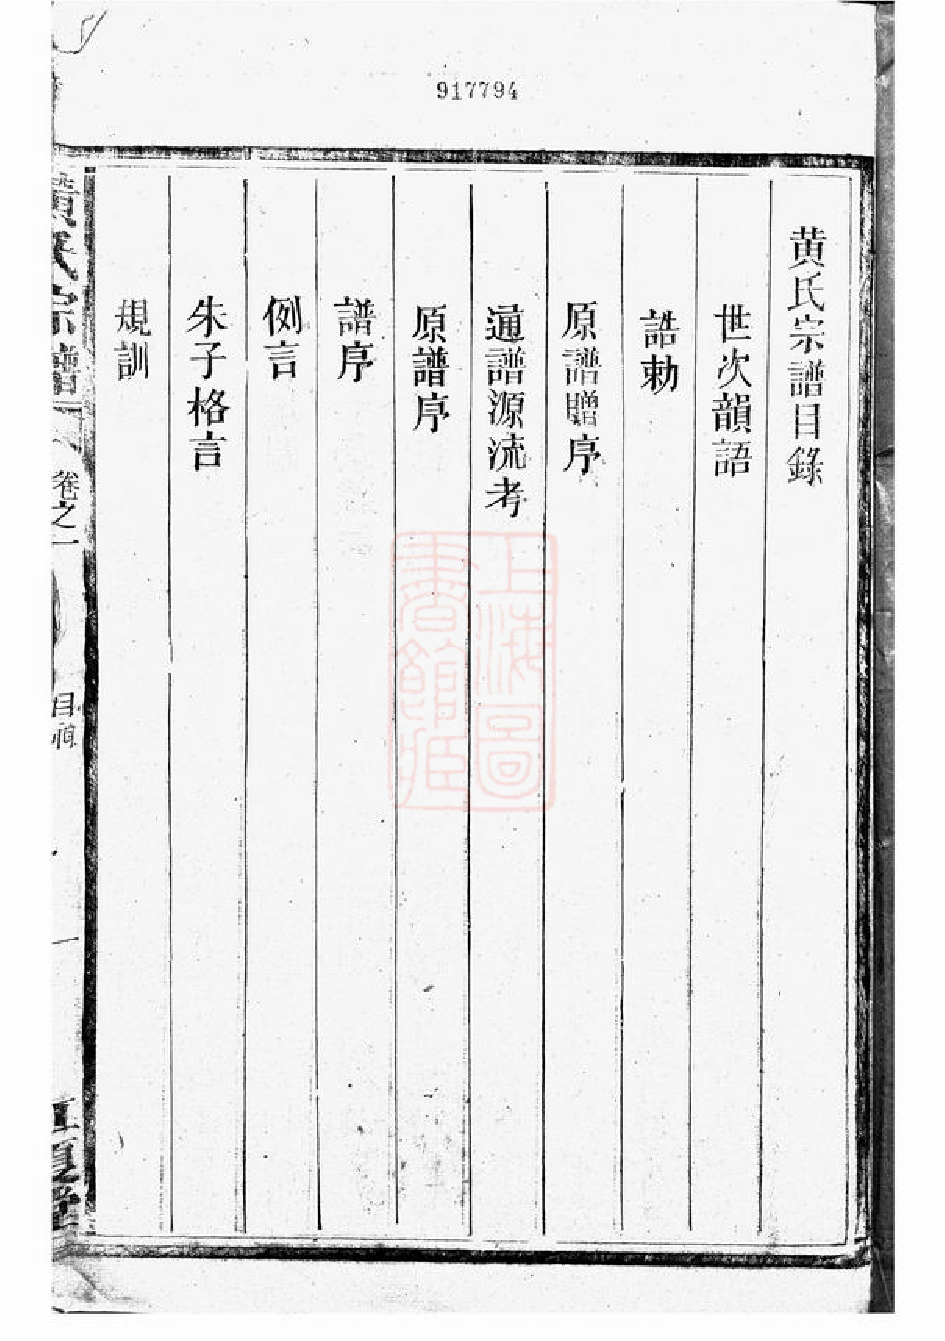 917794
黄氏宗譜目錄
世次韻語
誥勅
原譜贈序
通譜源流考
原譜序
譜序
例言
朱子格言
規訓
黃氏宗譜
卷之一
目
一
江夏堂
上海圖
書館藏